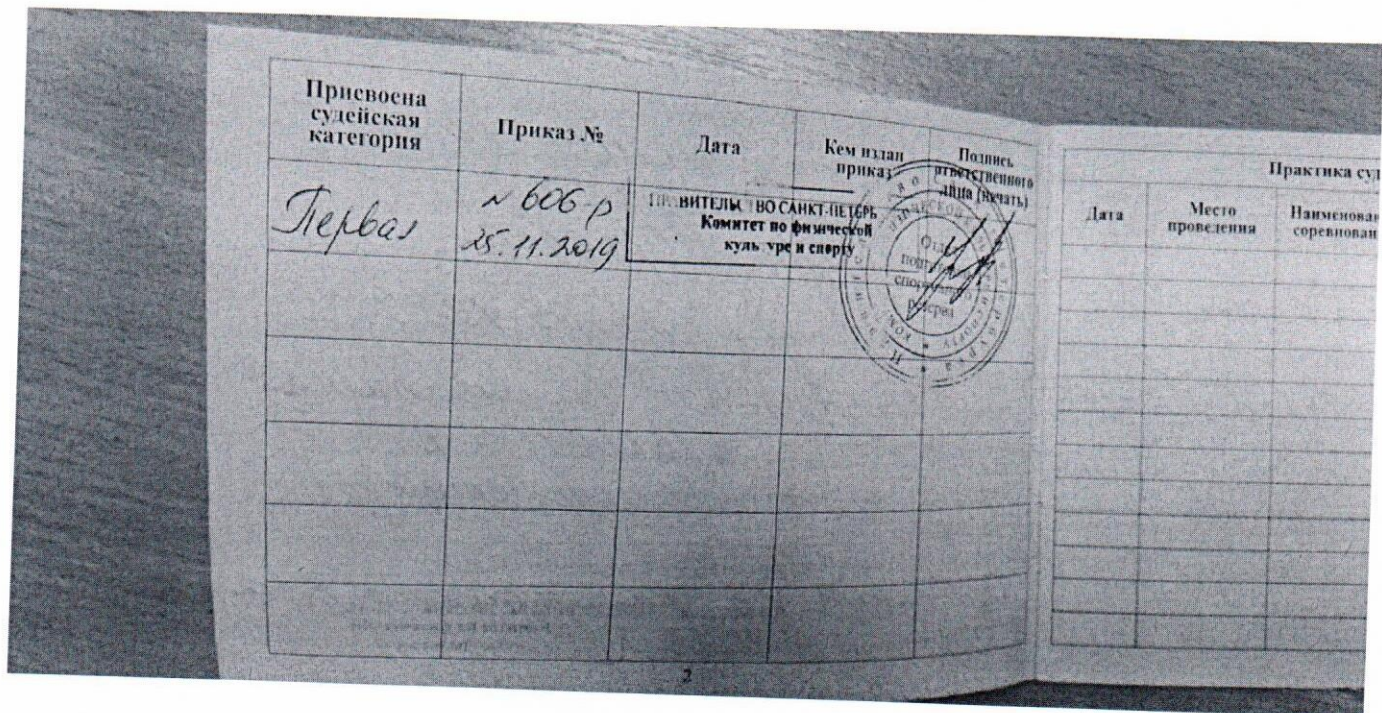 Присвоена
судейская
категория
Приказ №
Дата
Кем издан
приказ
Подпись
ответственного
лица (печать)
Первая
N 606-р
25.11.2019
ПРАВИТЕЛЬСТВО САНКТ-ПЕТЕРБ
Комитет по физической
культуре и спорту
Отдел
спортивного
резерва
2
Практика суд
Дата
Место
проведения
Наименован
соревнован